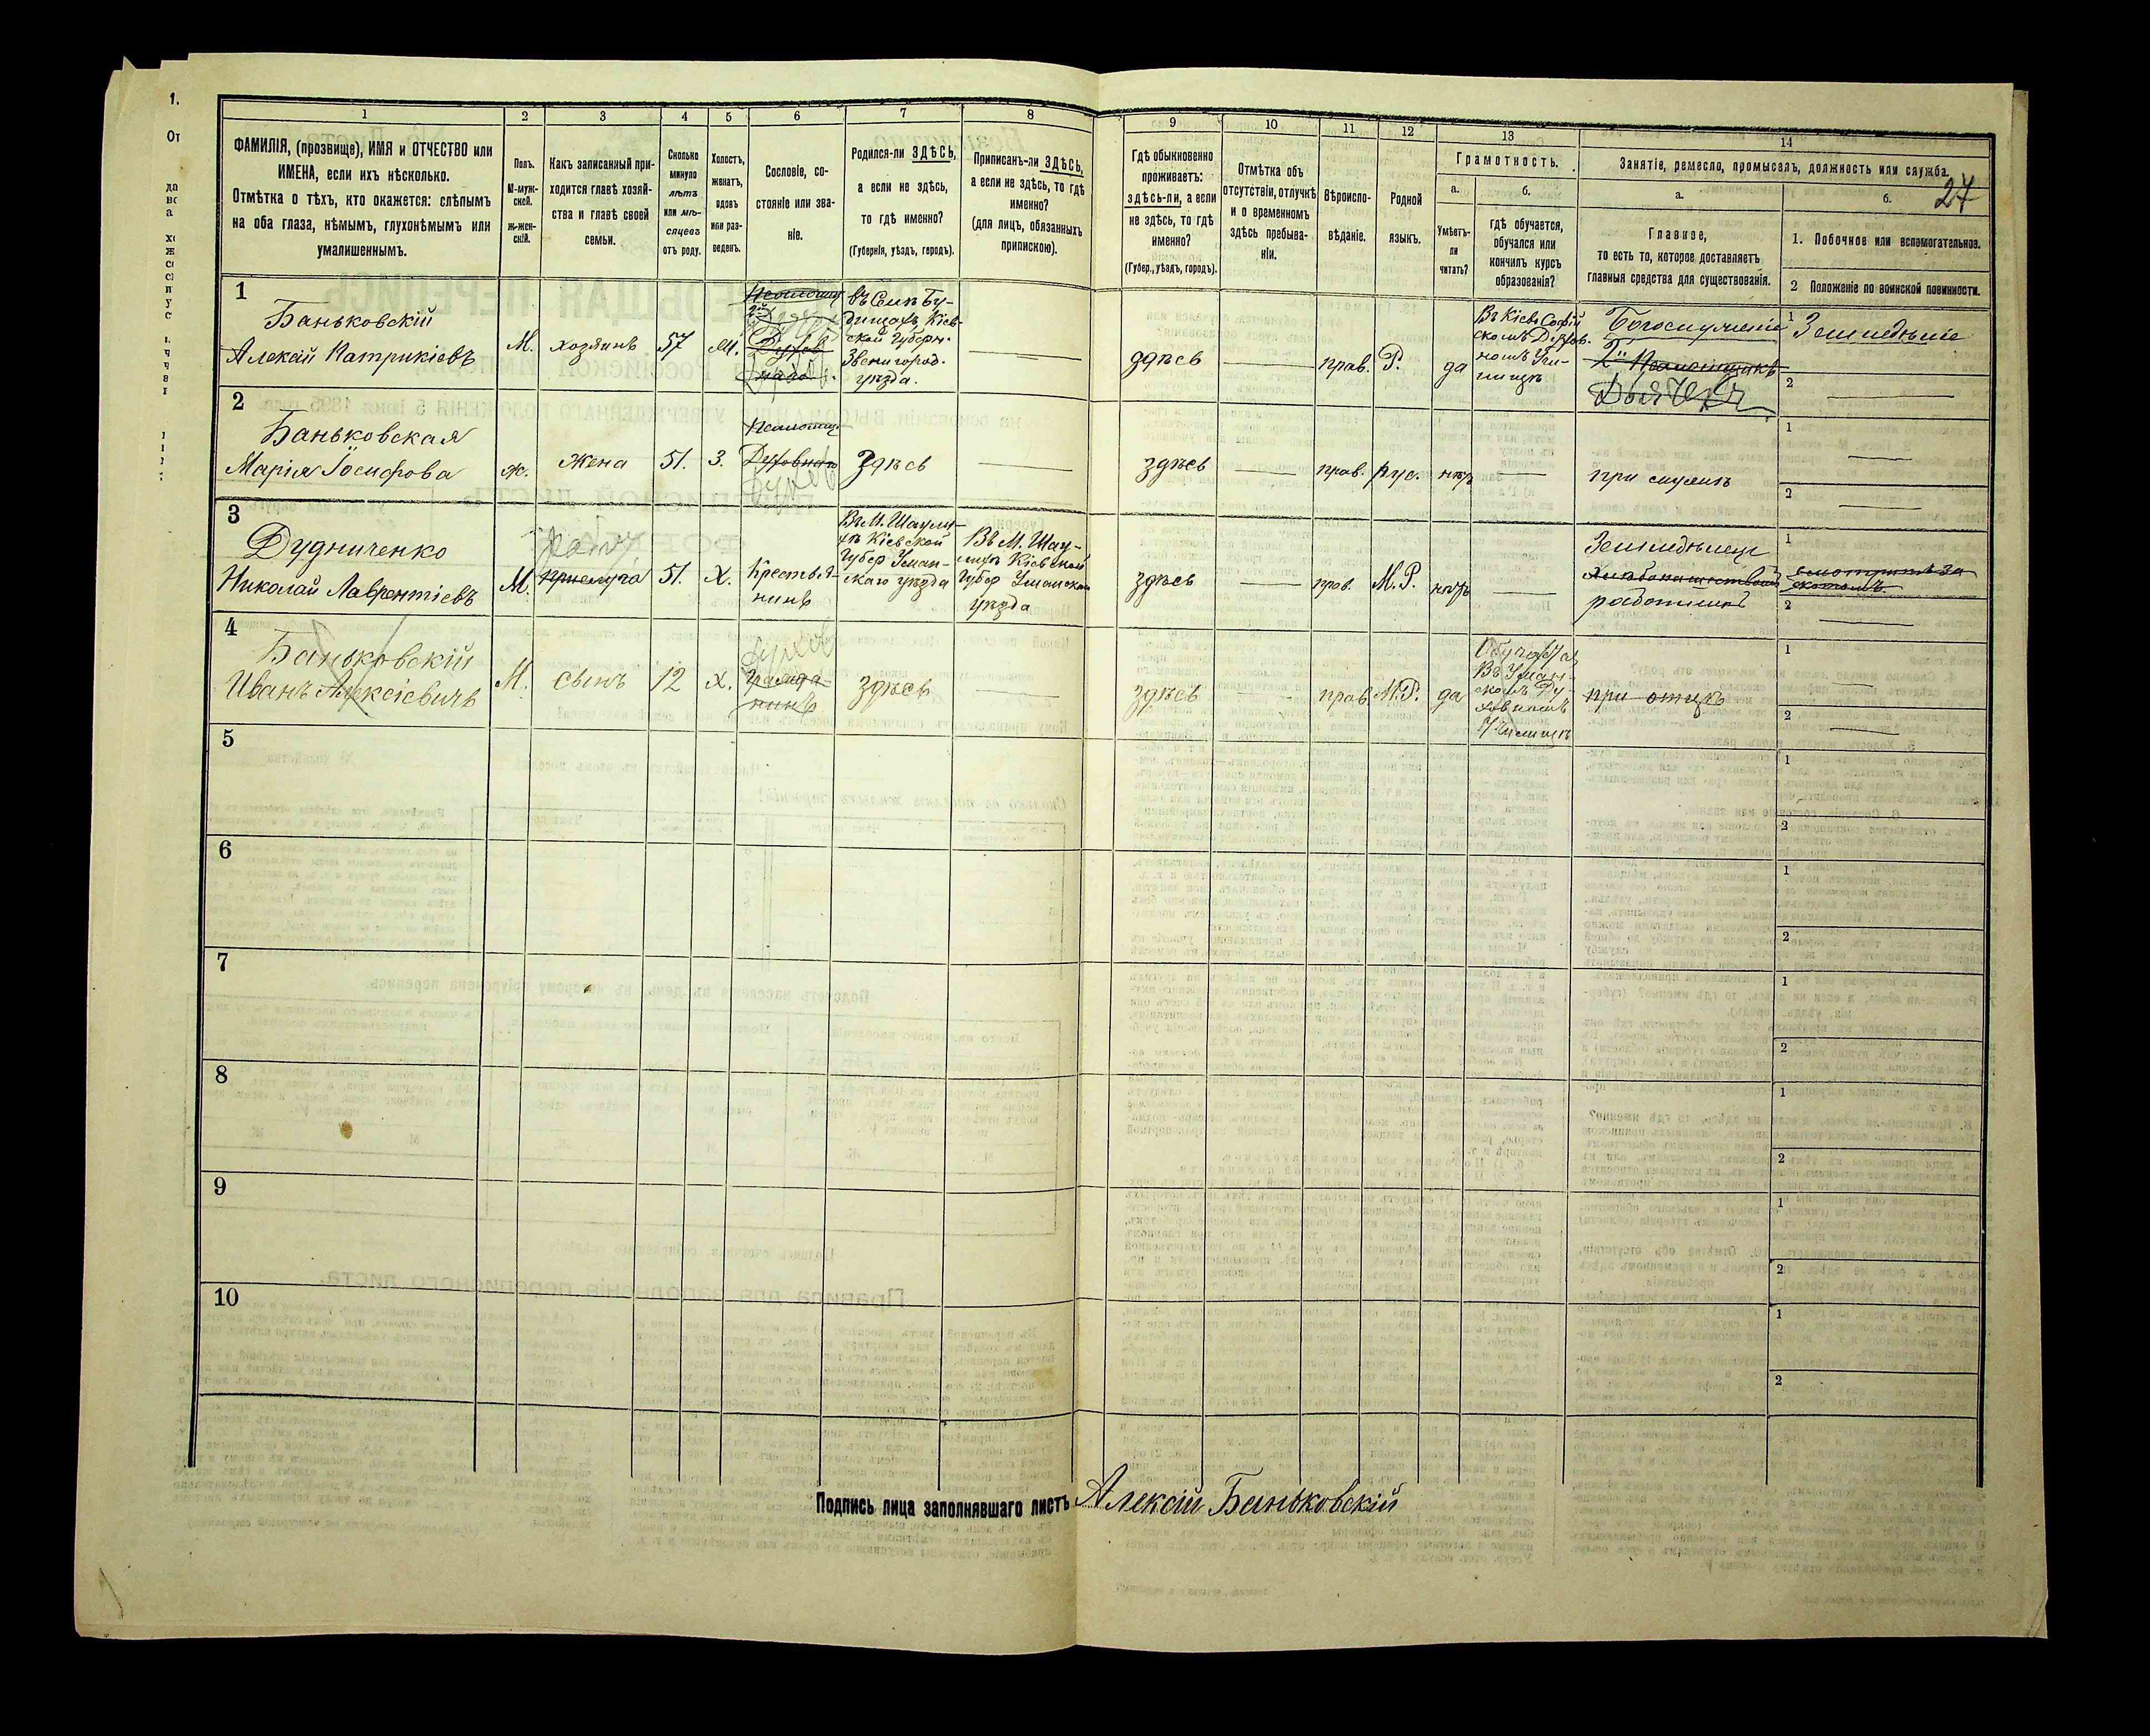 1.
От
27
1
2
3
4
5
6
7
8
9
10
11
12
13
14
ФАМИЛІЯ, (прозвище), ИМЯ и ОТЧЕСТВО или
ИМЕНА, если ихъ нѣсколько.
Отмѣтка о тѣхъ, кто окажется: слѣпымъ
на оба глаза, нѣмымъ, глухонѣмымъ или
умалишеннымъ.
Полъ.
М-муж-
ской.
Ж-жен-
скій.
Какъ записанный при-
ходится главѣ хозяй-
ства и главѣ своей
семьи.
Сколько
минуло
лѣтъ
или мѣ-
сяцевъ
отъ роду.
Холостъ,
женатъ,
вдовъ
или раз-
веденъ.
Сословіе, со-
стояніе или зва-
ніе.
Родился-ли ЗДѢСЬ,
а если не здѣсь,
то гдѣ именно?
(Губернія, уѣздъ, городъ).
Приписанъ-ли ЗДѢСЬ,
а если не здѣсь, то гдѣ
именно?
(для лицъ, обязанныхъ
припискою).
Гдѣ обыкновенно
проживаетъ:
здѣсь-ли, а если
не здѣсь, то гдѣ
именно?
(Губер., уѣздъ, городъ).
Отмѣтка объ
отсутствіи, отлучкѣ
и о временномъ
здѣсь пребыва-
ніи.
Вѣроиспо-
вѣданіе.
Родной
языкъ.
Грамотность.
а.
Умѣетъ-
ли
читать?
б.
гдѣ обучается,
обучался или
кончилъ курсъ
образованія?
Занятіе, ремесло, промыселъ, должность или служба.
а.
Главное,
то есть то, которое доставляетъ
главныя средства для существованія.
б.
1. Побочное или вспомогательное.
2 Положеніе по воинской повинности.
1
Баньковскій
Алексѣй Патрикіевъ
М.
хозяинъ
57
М.
Духов
наго
въ Селѣ Бу-
дищахъ Кіев-
ской Губерн.
Звенигород.
уѣзда.
здѣсь
прав.
Р.
да
Въ Кіево Софій
скомъ Духов-
номъ Учи-
лищѣ
Богослуженіе
2й Псаломщикъ
Дьячекъ
1
Земледѣліе
2
2
Баньковская
Марія Іосифова
ж.
жена
51.
З.
Псаломщ.
Духовная
Духов
Здѣсь
здѣсь
прав.
рус.
нѣтъ
при мужѣ
1
2
3
Дудниченко
Николай Лаврентіевъ
М.
прислуга
51.
Х.
Крестья-
нинъ
Въ М. Шаули-
хѣ Кіевской
Губер Уман-
скаго уѣзда
Въ М. Шау-
лихѣ Кіевской
Губер Уманскаго
уѣзда
здѣсь
прав.
М.Р.
нѣтъ
Земледѣлец
хлѣбопашествомъ
работникъ
1
смотритъ за
скотомъ.
2
4
Баньковскій
Иванъ Алексіевичъ
М.
сынъ
12
Х.
Духов
Гражда-
нинъ
здѣсь
здѣсь
прав.
М.Р.
да
Обучается
Въ Уман-
скомъ Ду-
ховномъ
Училищѣ
при отцѣ
1
2
5
1
2
6
1
2
7
1
2
8
1
2
9
1
2
10
1
2
Подпись лица заполнявшаго листъ Алексій Баньковскій